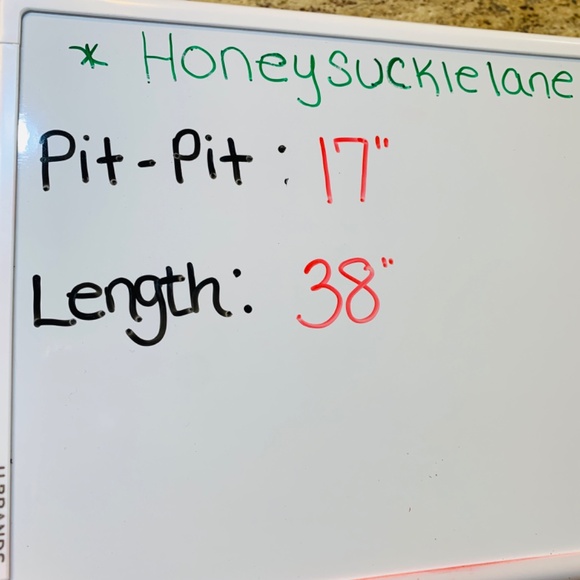 * Honeysucklelane
Pit-Pit: 17"
Length: 38"